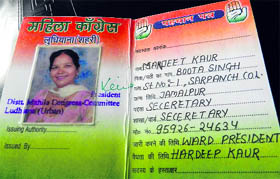 महिला काँग्रेस
लुधियाना (शहरी)
President
Distt. Mahila Congress Committee
Ludhiana (Urban)
Issuing Authority
Issued By
पहचान पत्र
MANDEET KAUR
BOOTA SINGH
St. No-1, SARPANCH COL.
JAMALPUR
SECERETARY
SECERETARY
95926-24634
WARD PRESIDENT
HARDEEP KAUR
सदस्य के हस्ताक्षर